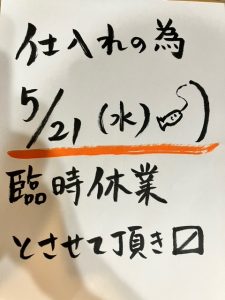 仕入れの為
5/21(水)
臨時休業
とさせて頂き〼